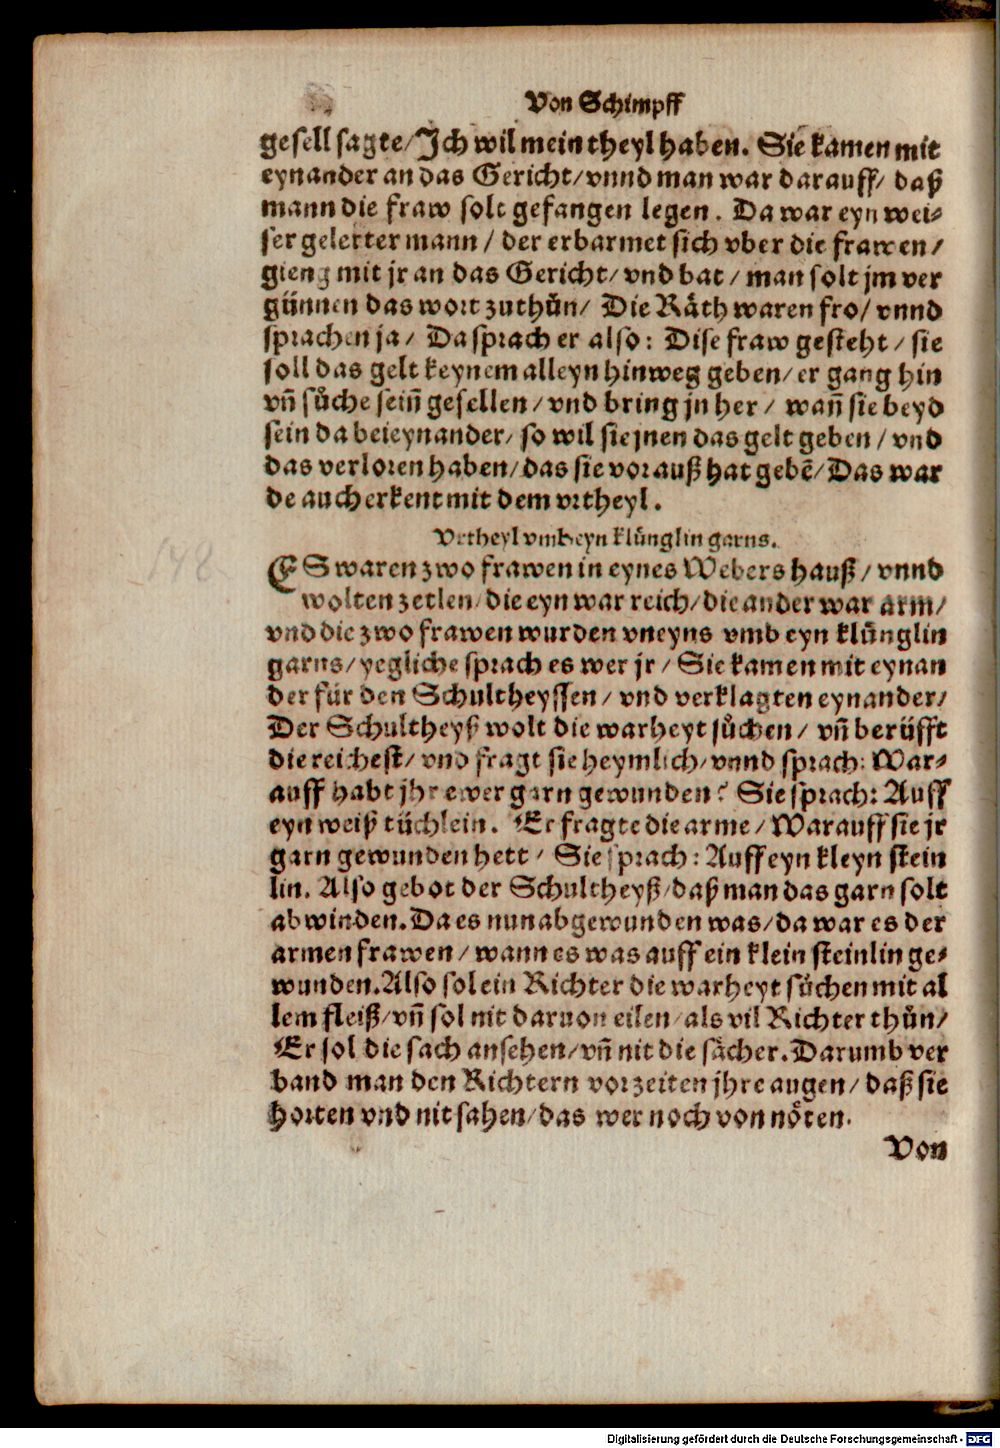 Von Schimpff
gesell sagte/ Ich wil mein theyl haben. Sie kamen mit
eynander an das Gericht/ vnnd man war darauff/ daß
mann die fraw solt gefangen legen. Da war eyn wei-
ser gelerter mann/ der erbarmet sich vber die frawen/
gieng mit jr an das Gericht/ vnd bat/ man solt jm ver
günnen das wort zuthůn/ Die Räth waren fro/ vnnd
sprachen ja/ Da sprach er also: Dise fraw gesteht/ sie
soll das gelt keynem alleyn hinweg geben/ er gang hin
vn̄ sůche sein̄ gesellen/ vnd bring jn her/ wan̄ sie beyd
sein da beieynander/ so wil sie jnen das gelt geben/ vnd
das verloren haben/ das sie vor auß hat gebē/ Das war
de auch erkent mit dem vrtheyl.
Vrtheyl vmb eyn klünglin garns.
ES waren zwo frawen in eynes Webers hauß/ vnnd
wolten zetlen/ die eyn war reich/ die ander war arm/
vnd die zwo frawen wurden vneyns vmb eyn klünglin
garns/ yegliche sprach es wer jr/ Sie kamen mit eynan
der für den Schultheyssen/ vnd verklagten eynander/
Der Schultheyß wolt die warheyt sůchen/ vn̄ berüfft
die reichest/ vnd fragt sie heymlich/ vnnd sprach: War-
auff habt jhr ewer garn gewunden? Sie sprach: Auff
eyn weiß tüchlein. Er fragte die arme/ Warauff sie jr
garn gewunden hett/ Sie sprach: Auff eyn kleyn stein
lin. Also gebot der Schultheyß/ daß man das garn solt
abwinden. Da es nun abgewunden was/ da war es der
armen frawen/ wann es was auff ein klein steinlin ge-
wunden. Also sol ein Richter die warheyt sůchen mit al
lem fleiß/ vn̄ sol nit daruon eilen/ als vil Richter thůn/
Er sol die sach ansehen/ vn̄ nit die sächer. Darumb ver
band man den Richtern vorzeiten jhre augen/ daß sie
horten vnd nit sahen/ das wer noch von nöten.
Von
148
Digitalisierung gefördert durch die Deutsche Forschungsgemeinschaft - DFG